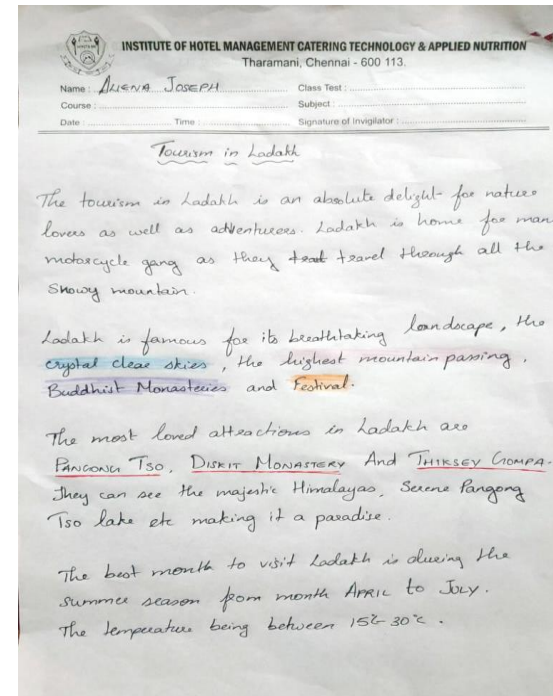 INSTITUTE OF HOTEL MANAGEMENT CATERING TECHNOLOGY & APPLIED NUTRITION
Tharamani, Chennai - 600 113.
Name : ALIENA JOSEPH Class Test :
Course : Subject :
Date : Time : Signature of Invigilator :
Tourism in Ladakh
The tourism in Ladakh is an absolute delight for nature
lovers as well as adventurers. Ladakh is home for man
motorcycle gang as they travel through all the
Snowy mountain.
Ladakh is famous for its breathtaking landscape, the
crystal clear skies, the highest mountain passing,
Buddhist Monasteries and Festival.
The most loved attractions in Ladakh are
PANGONG TSO, DISKIT MONASTERY And THIKSEY GOMPA.
They can see the majestic Himalayas, Serene Pangong
Tso lake etc making it a paradise.
The best month to visit Ladakh is during the
summer season from month APRIL to JULY.
The temperature being between 15°c 30°c.